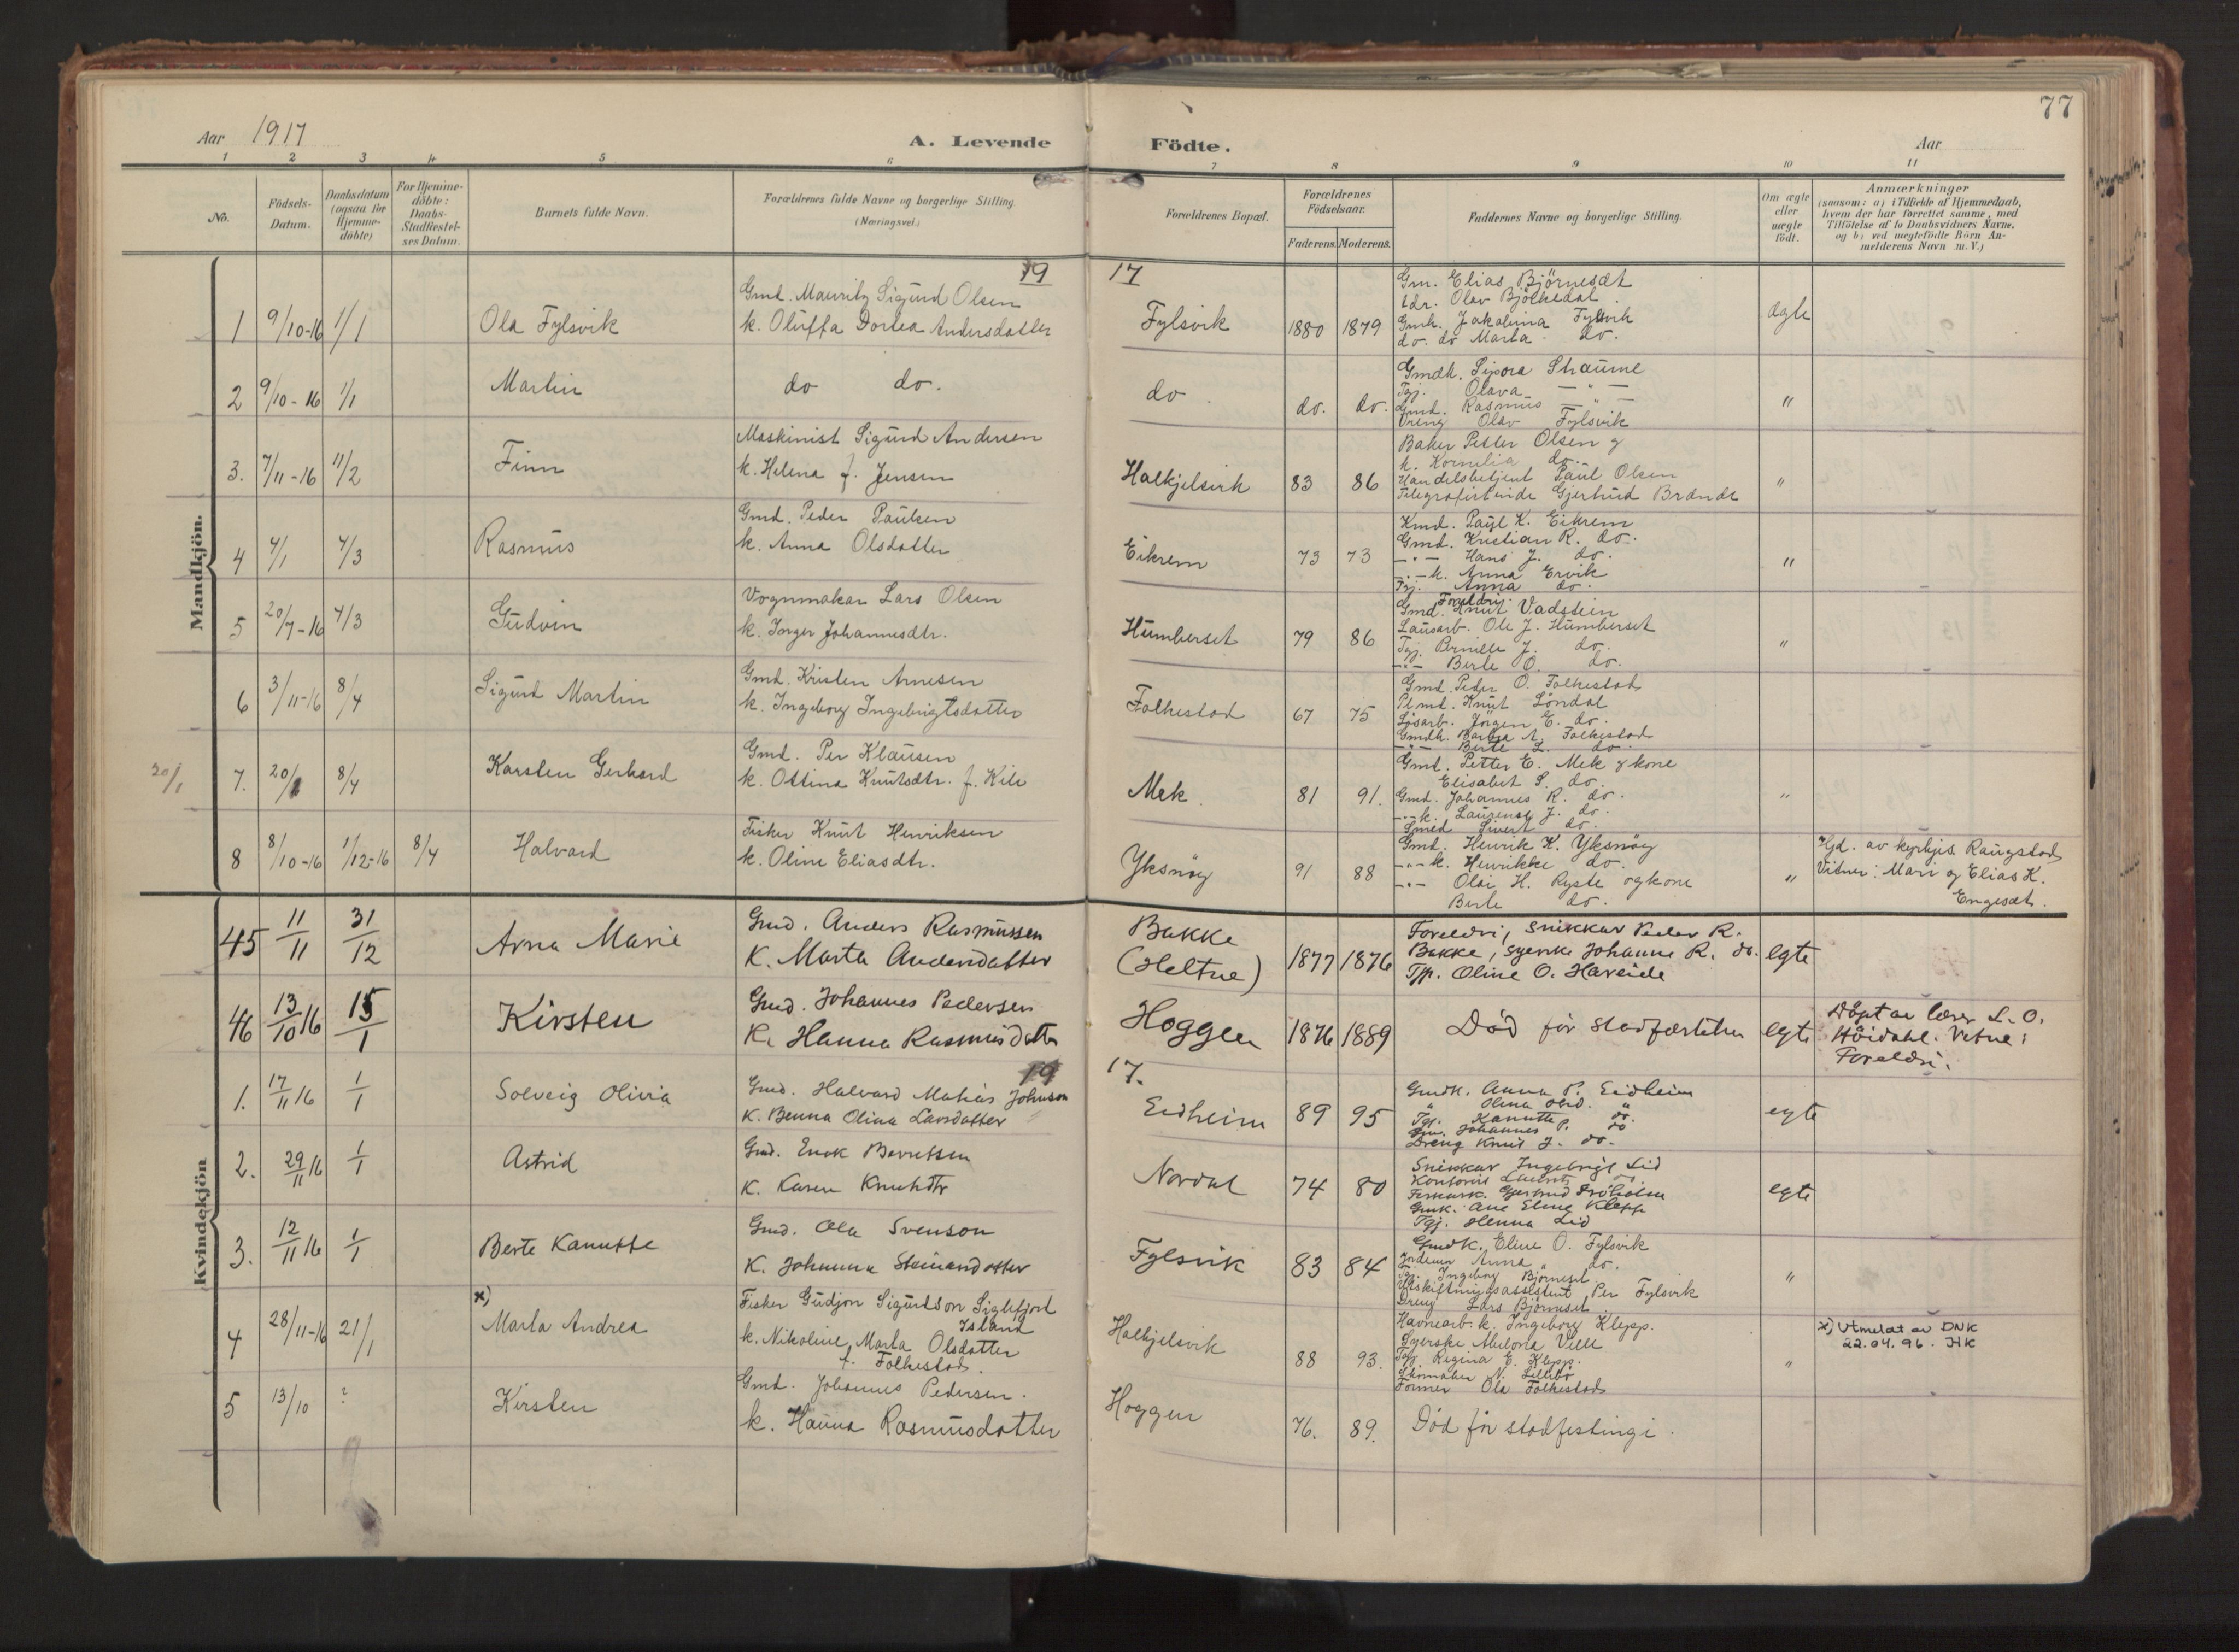 77
Aar 1917
A. Levende Födte.
Aar
1 2 3 4 5 6 7 8 9 10 11
No.
Födsels-Datum.
Daabsdatum (ogsaa for Hjemme-döbte)
For Hjemme-döbte: Daabs-Stadfæstel-ses Datum.
Barnets fulde Navn.
Forældrenes fulde Navne og borgerlige Stilling. (Næringsvei.)
Forældrenes Bopæl.
Forældrenes Födselsaar.
Faderens. Moderens.
Faddernes Navne og borgerlige Stilling.
Om ægte eller uægte födt.
Anmærkninger
(saasom: a) i Tilfælde af Hjemmedaab, hvem der har forrettet samme, med Tilföielse af to Daabsvidners Navne. og b) ved uægtefödte Börn An-melderens Navn m. V.)
Mandkjön.
19 17
1 9/10-16 1/1 Ola Fylsvik
Gmd. Mauritz Sigurd Olsen
k. Oluffa Dortea Andersdatter
Fylsvik 1880 1879
Gm. Elias Björneset
Olav Björkedal
Gmk. Jakobina Fylsvik
do. do Marta do.
2 9/10-16 1/1 Martin
do do.
do. do. do.
Gmdk. Sipora Straume
Tgj. Olava — " —
Gmd. Rasmus — " —
Dreng Olav Fylsvik
"
3. 7/11-16 11/2 Finn
Maskinist Sigurd Andersen
k. Helena f. Jensen
Halkjelsvik 83 86
Baker Petter Olsen og
k. Kornelia do.
Handelsbetjent Paul Olsen
Telegrafistinde Gjertrud Brandt
"
4 4/1 4/3 Rasmus
Gmd. Peder Paulsen
k. Anna Olsdatter
Eikrem 73 73
Kmd. Paul K. Eikrem
Gmd. Kristian R. do.
— " — Hans J. do.
— " — k. Anna Ervik
Tgj. Anna do.
"
5 20/7-16 4/3 Gudvin
Vognmakar Lars Olsen
k. Inger Johannesdtr.
Humberset 79 86
Foreldri.
Gmd. Knut Vadstein
Lausarb. Ole J. Humberset
Tgj. Pernille J. do.
— " — Berte O. do.
"
6 3/11-16 8/4 Sigurd Martin
Gmd. Kristen Arnesen
k. Ingeborg Ingebrigtsdatter
Folkestad 67 75
Gmd. Peder O. Folkestad
Plmd. Knut Löndal
Lösarb. Jörgen E. do.
Gmdk. Barbra A. Folkestad
— " — Berte L. do.
20/1
7. 20/1 8/4 Karsten Gerhard
Gmd. Per Klausen
k. Ottina Knutsdtr. f. Kile
Mek. 81 91.
Gmd. Petter E. Mek og kone
Elisabet S. do.
Gmd. Johannes R. do.
— " — k. Laurense J. do.
Smed Sivert do.
"
8 8/10-16 1/12-16 8/4 Halvard
Fisker Knut Henriksen
k. Oline Eliasdtr.
Yksnöy 91 88
Gmd. Henrik K. Yksnöy
— " — k. Henrikke do.
— " — Olai H. Ryste og kone
Berte do.
"
Hjd. av kyrkjes. Raugstad
Vitner: Mari og Elias K.
Engeset.
Kvindekjön
45 11/11 31/12 Arna Marie
Gmd. Anders Rasmussen
K. Marta Andersdatter
Bakke
(Heltne)
1877 1876
Foreldri, Snikkar Peder R.
Bakke, syerske Johanne R. do.
Tjp. Oline O. Hareide
egte
46 13/10 16 15/1 Kirsten
Gmd. Johannes Pedersen
K. Hanna Rasmusdatter
Hoggen 1876 1889
Död för stadfæstelsen
egte
Döpt av lærer L. O.
Höidahl. Vitne:
Foreldri.
19 17.
1. 17/11 16 1/1 Solveig Olivia
Gmd. Halvard Matias Johnson
K. Benna Olina Larsdatter
Eidheim 89 95
Gmdk. Anna P. Eidheim
" Olina
Tgj. Kanutte do.
Gm. Johannes P. do
Dreng Knut J. do.
egte
2. 29/11 16 1/1 Astrid
Gmd. Enok Berntsen
K. Karen Knutsdtr
Nordal 74 80
Snikkar Ingebrigt Lid
Kontorist
Gjertrud Fröholm
Gmk. Ane Eline Klepp
Tgj. Henna Lid
egte
3. 12/11 16 1/1 Berte Kanutte
Gmd. Ola Svenson
K. Johanna Steinandatter
Fylsvik 83 84
Gmdk. Eline O. Fylsvik
Jordemor Anna " do.
Tgj. Ingeborg Björneset
Utskiftningsassistent Per Fylsvik
Dreng Lars Björneset
"
4 28/11-16 21/1 x) Marta Andrea
Fisker Gudjon Sigurdson Siglefjord
Island
k. Nikoline Marta Olsdatter
f. Folkestad.
Halkjelsvik 88 93.
Havnearb. k. Ingeborg Klepp.
Syerske Abelona Velle
Tgj. Regina E. Klepp.
Skomaker N. Lillebö
Former Ola Folkestad
"
x) Utmeldt av DNK
22.04.96. HK
5 13/10 ? Kirsten
Gmd. Johannes Pedersen.
k. Hanna Rasmusdatter
Hoggen 76. 89.
Död för stadfestingi.